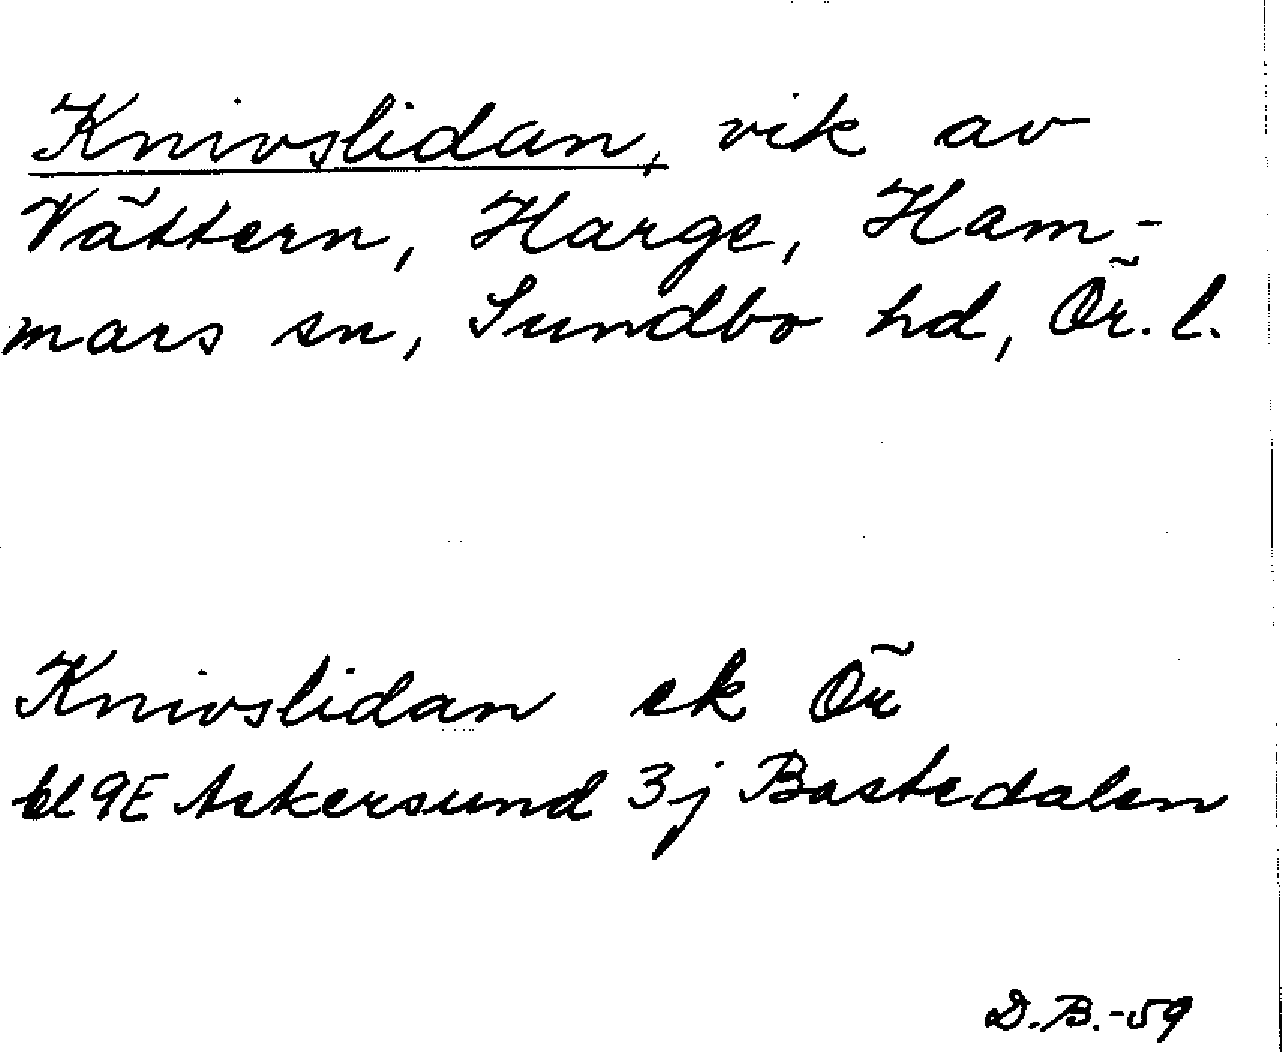 Knivslidan, vik av
Vättern, Harge, Ham-
mars sn, Sundbo hd, Ör. l.
Knivslidan ek Ör
bl 9E Askersund 3j Bastedalen
D.B.-59